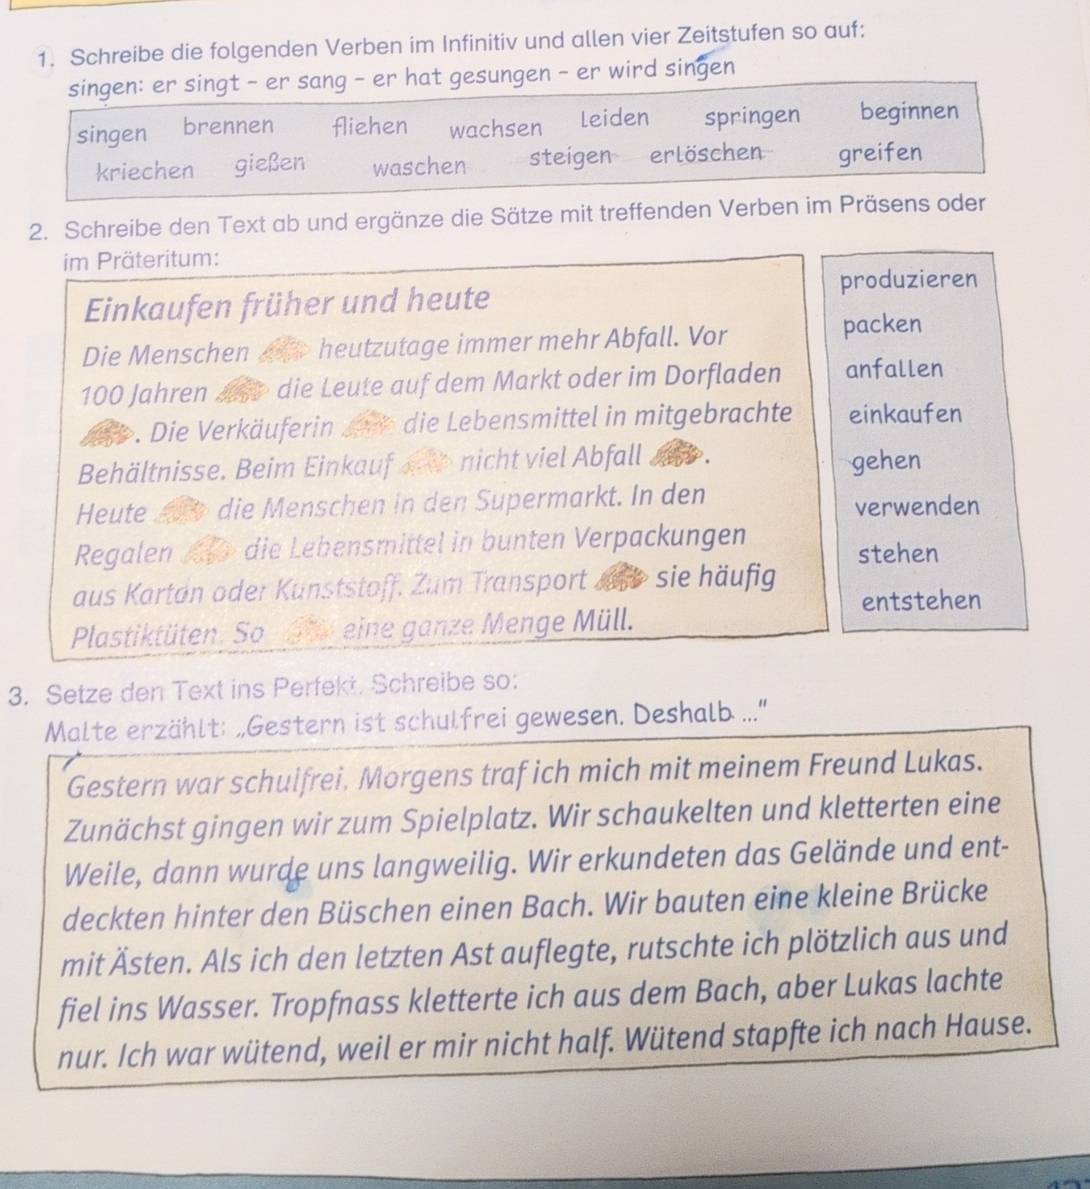 1. Schreibe die folgenden Verben im Infinitiv und allen vier Zeitstufen so auf:
singen: er singt - er sang - er hat gesungen - er wird singen
singen brennen fliehen wachsen leiden springen beginnen
kriechen gießen waschen steigen erlöschen greifen
2. Schreibe den Text ab und ergänze die Sätze mit treffenden Verben im Präsens oder
im Präteritum:
Einkaufen früher und heute
Die Menschen heutzutage immer mehr Abfall. Vor
100 Jahren die Leute auf dem Markt oder im Dorfladen
. Die Verkäuferin die Lebensmittel in mitgebrachte
Behältnisse. Beim Einkauf nicht viel Abfall .
Heute die Menschen in den Supermarkt. In den
Regalen die Lebensmittel in bunten Verpackungen
aus Karton oder Kunststoff. Zum Transport sie häufig
Plastiktüten. So eine ganze Menge Müll.
produzieren
packen
anfallen
einkaufen
gehen
verwenden
stehen
entstehen
3. Setze den Text ins Perfekt. Schreibe so:
Malte erzählt: „Gestern ist schulfrei gewesen. Deshalb ..."
Gestern war schulfrei. Morgens traf ich mich mit meinem Freund Lukas.
Zunächst gingen wir zum Spielplatz. Wir schaukelten und kletterten eine
Weile, dann wurde uns langweilig. Wir erkundeten das Gelände und ent-
deckten hinter den Büschen einen Bach. Wir bauten eine kleine Brücke
mit Ästen. Als ich den letzten Ast auflegte, rutschte ich plötzlich aus und
fiel ins Wasser. Tropfnass kletterte ich aus dem Bach, aber Lukas lachte
nur. Ich war wütend, weil er mir nicht half. Wütend stapfte ich nach Hause.